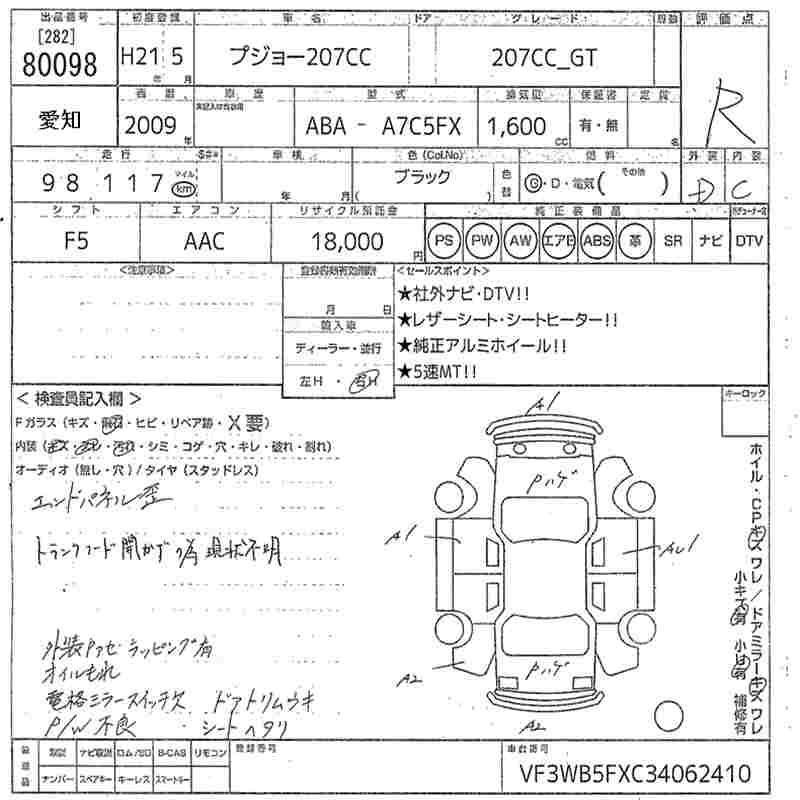 出品番号 初度登録 車名 ドア グレード 評価点
[282]
80098 H21 5 プジョー207CC 207CC_GT R
年 月
愛知 車歴 型式 排気量 保証書 定員
2009 年 ABA - A7C5FX 1,600 CC 有・無 名
走行 車検 色(Col.No) 色替 燃料 外装 内装
98 117 マイル km 年 月 ブラック G・D・電気( その他 ) D C
シフト エアコン リサイクル預託金 純正装備品
F5 AAC 18,000 円 PS PW AW エアB ABS 革 SR ナビ DTV
<注意事項> <セールスポイント>
月 日 ★社外ナビ・DTV!!
輸入車 ★レザーシート・シートヒーター!!
ディーラー・並行 ★純正アルミホイール!!
左H・右H ★5速MT!!
<検査員記入欄> キーロック
Fガラス(キズ・飛石・ヒビ・リペア跡・X要)
内装(キズ・汚れ・シミ・コゲ・穴・キレ・破れ・割れ)
オーディオ(無し・穴)/タイヤ(スタッドレス)
エンドパネル歪
トランクフード開かず為現状不明
外装Pハゼ ラッピング有
オイルもれ
電格ミラースイッチ欠 ドアトリムウキ
P/W不良 シートヘタリ
A1
Pハゲ
A1
AU1
Pハゲ
A2
A2
ホイル・CPキズワレ/ドアミラーキズワレ
小キズ有 小凹有 補修有
取説 ナビ取説 ロム/SD B-CAS リモコン 登録番号 車台番号
ナンバー スペアキー キーレス スマートキー VF3WB5FXC34062410